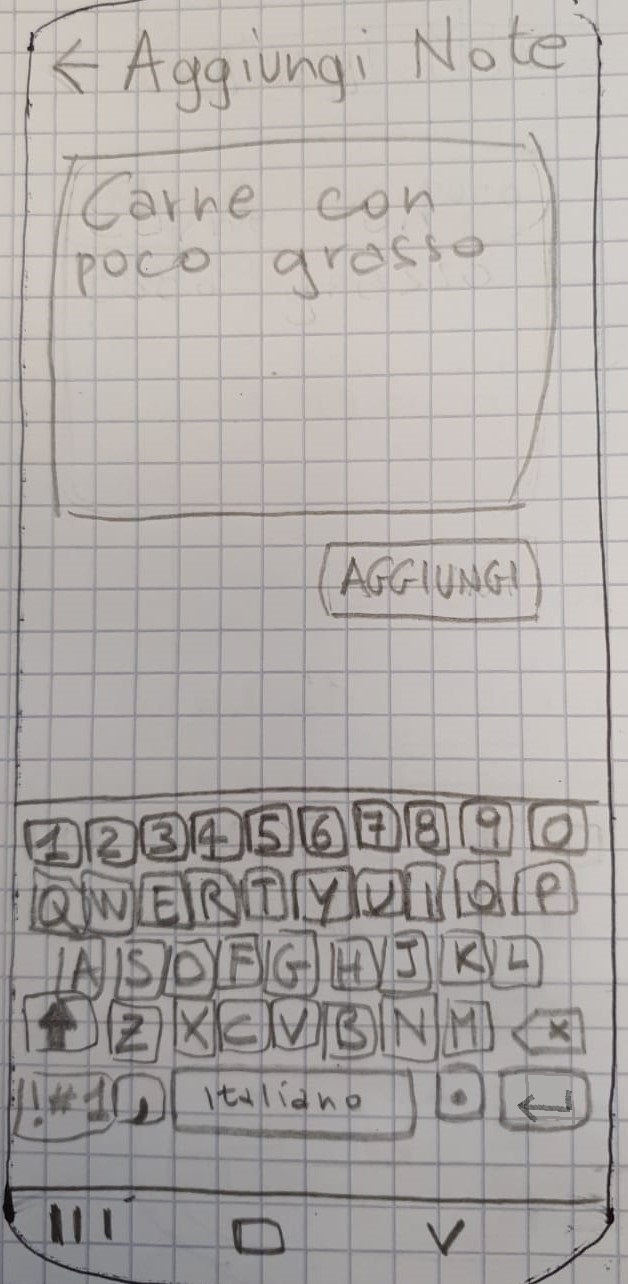 ← Aggiungi Note
Carne con
poco grasso
AGGIUNGI
1 2 3 4 5 6 7 8 9 0
Q W E R T Y U I O P
A S D F G H J K L
Z X C V B N M
!#1 , Italiano .